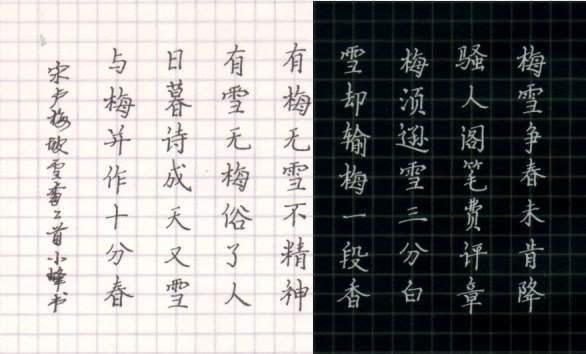 梅雪争春未肯降
骚人阁笔费评章
梅须逊雪三分白
雪却输梅一段香
有梅无雪不精神
有雪无梅俗了人
日暮诗成天又雪
与梅并作十分春
宋卢梅坡雪梅二首小峰书